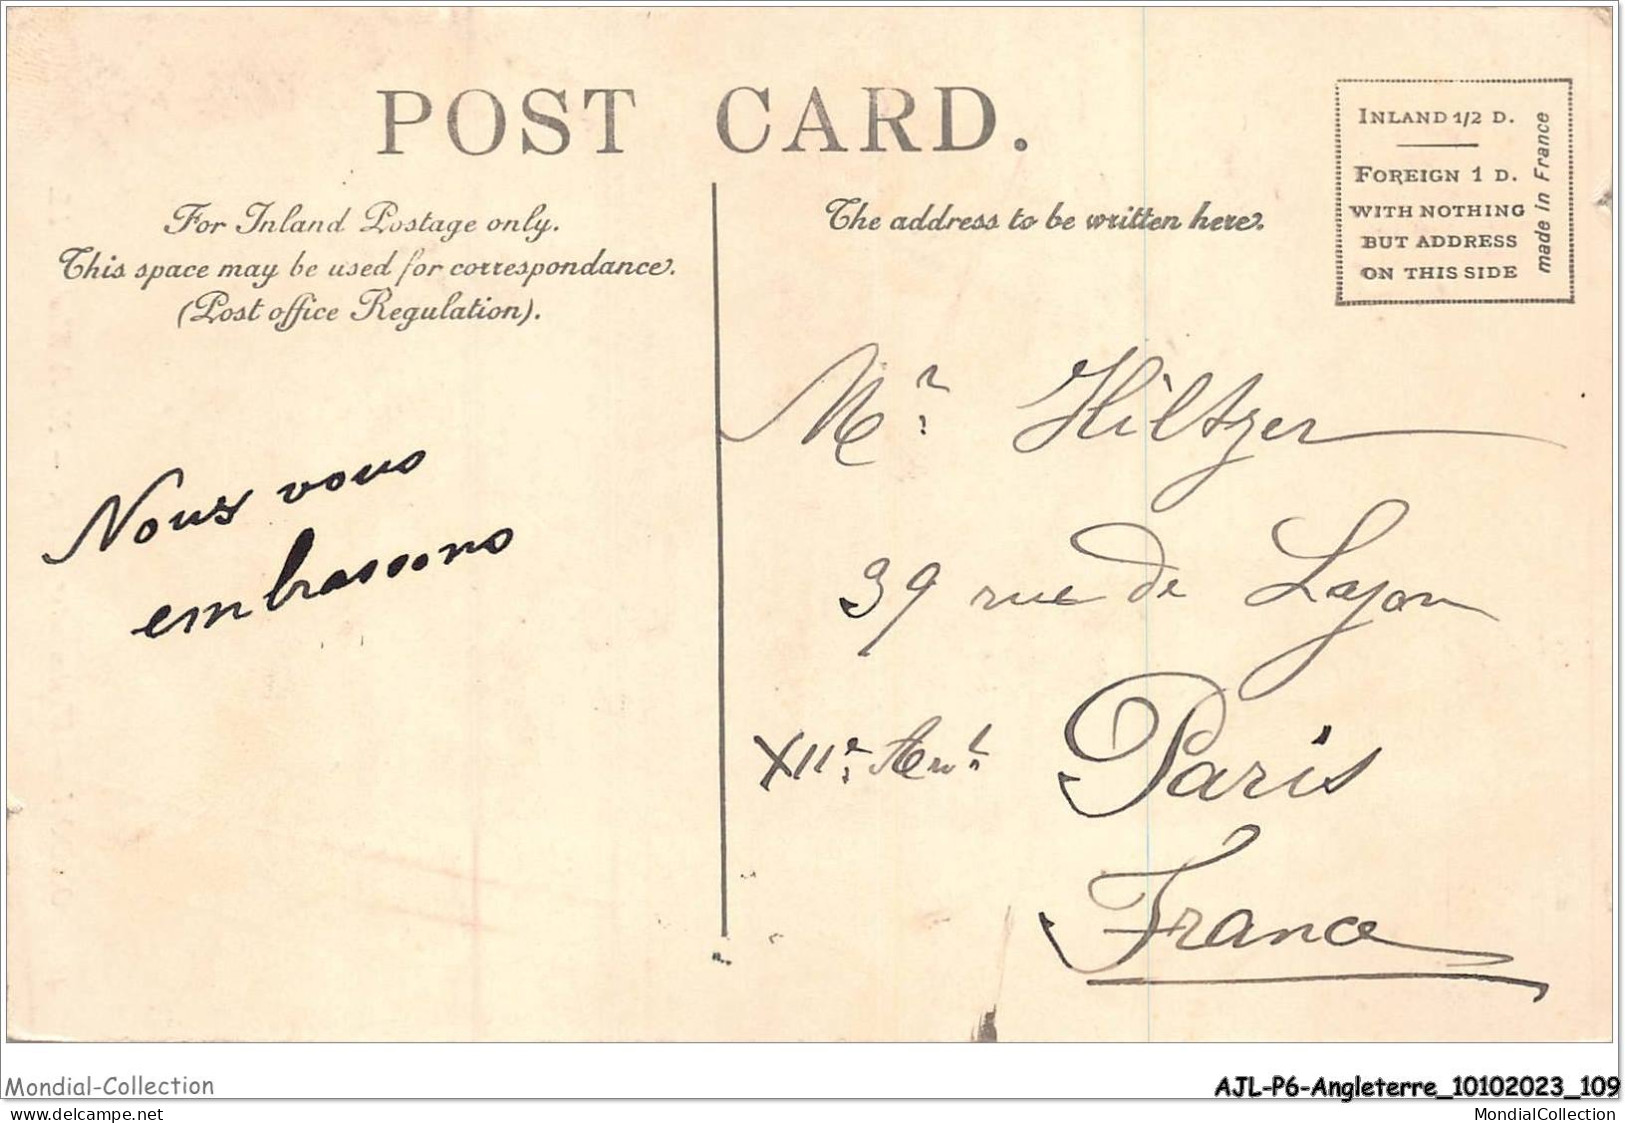 POST CARD.
For Inland Postage only.
This space may be used for correspondance.
(Post office Regulation).
The address to be written here.
INLAND 1/2 D.
FOREIGN 1 D.
WITH NOTHING
BUT ADDRESS
ON THIS SIDE
made in France
Nous vous
embrassons
Mr Hiltzer
39 rue de Lyon
XIIe Arrt Paris
France
Mondial-Collection
AJL-P6-Angleterre_10102023_109
www.delcampe.net
MondialCollection